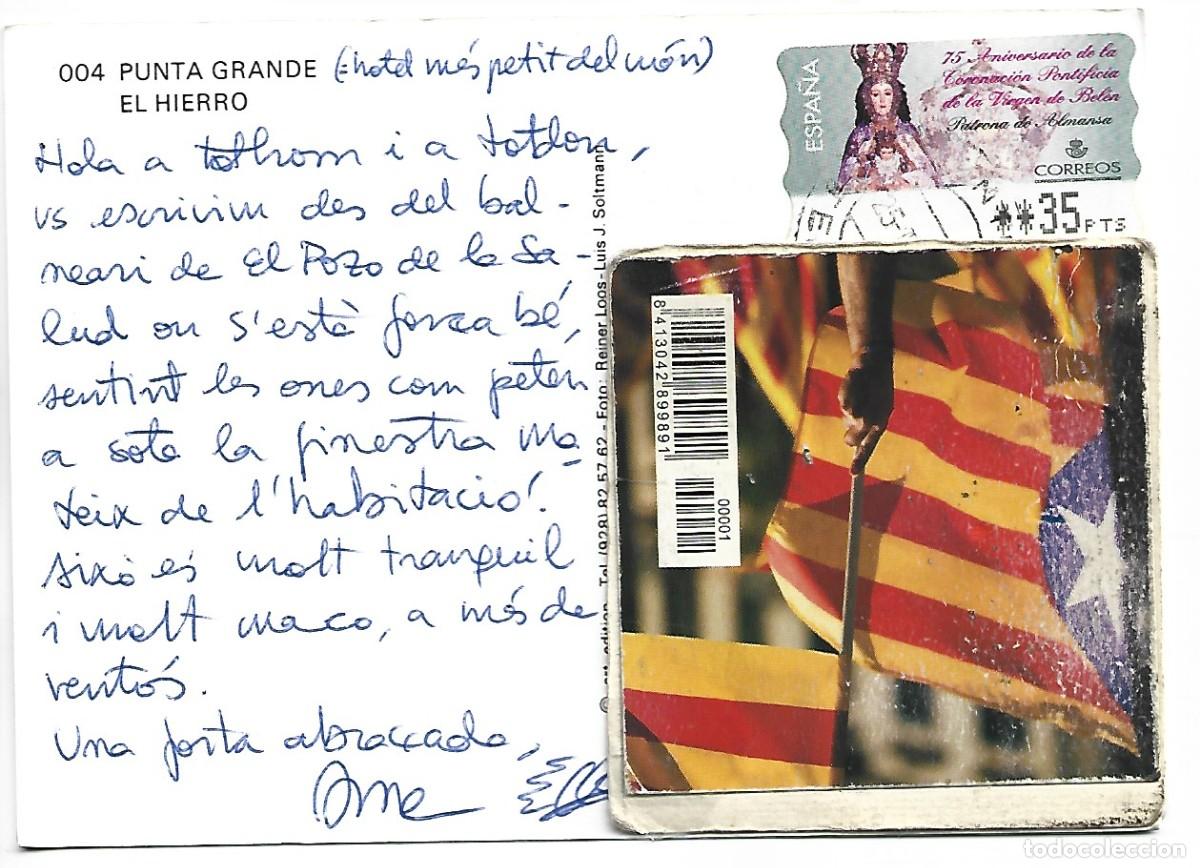 004 PUNTA GRANDE (=hotel més petit del món)
EL HIERRO
Hola a tothom i a totdon,
us escrivim des del bal-
neari de El Pozo de la Sa-
lud on s'està força bé,
sentint les ones com peten
a sota la finestra ma
teix de l'habitació!
Això és molt tranquil
i molt maco, a més de
ventós.
Una forta abraçada,
© edition Tel. (928) 82 57 62 - Foto: Reiner Loos Luis J. Soltmann
ESPAÑA
75 Aniversario de la
Coronación Pontificia
de la Virgen de Belén
Patrona de Almansa
CORREOS
**35 PTS
8 413042 899891
00001
todocoleccion